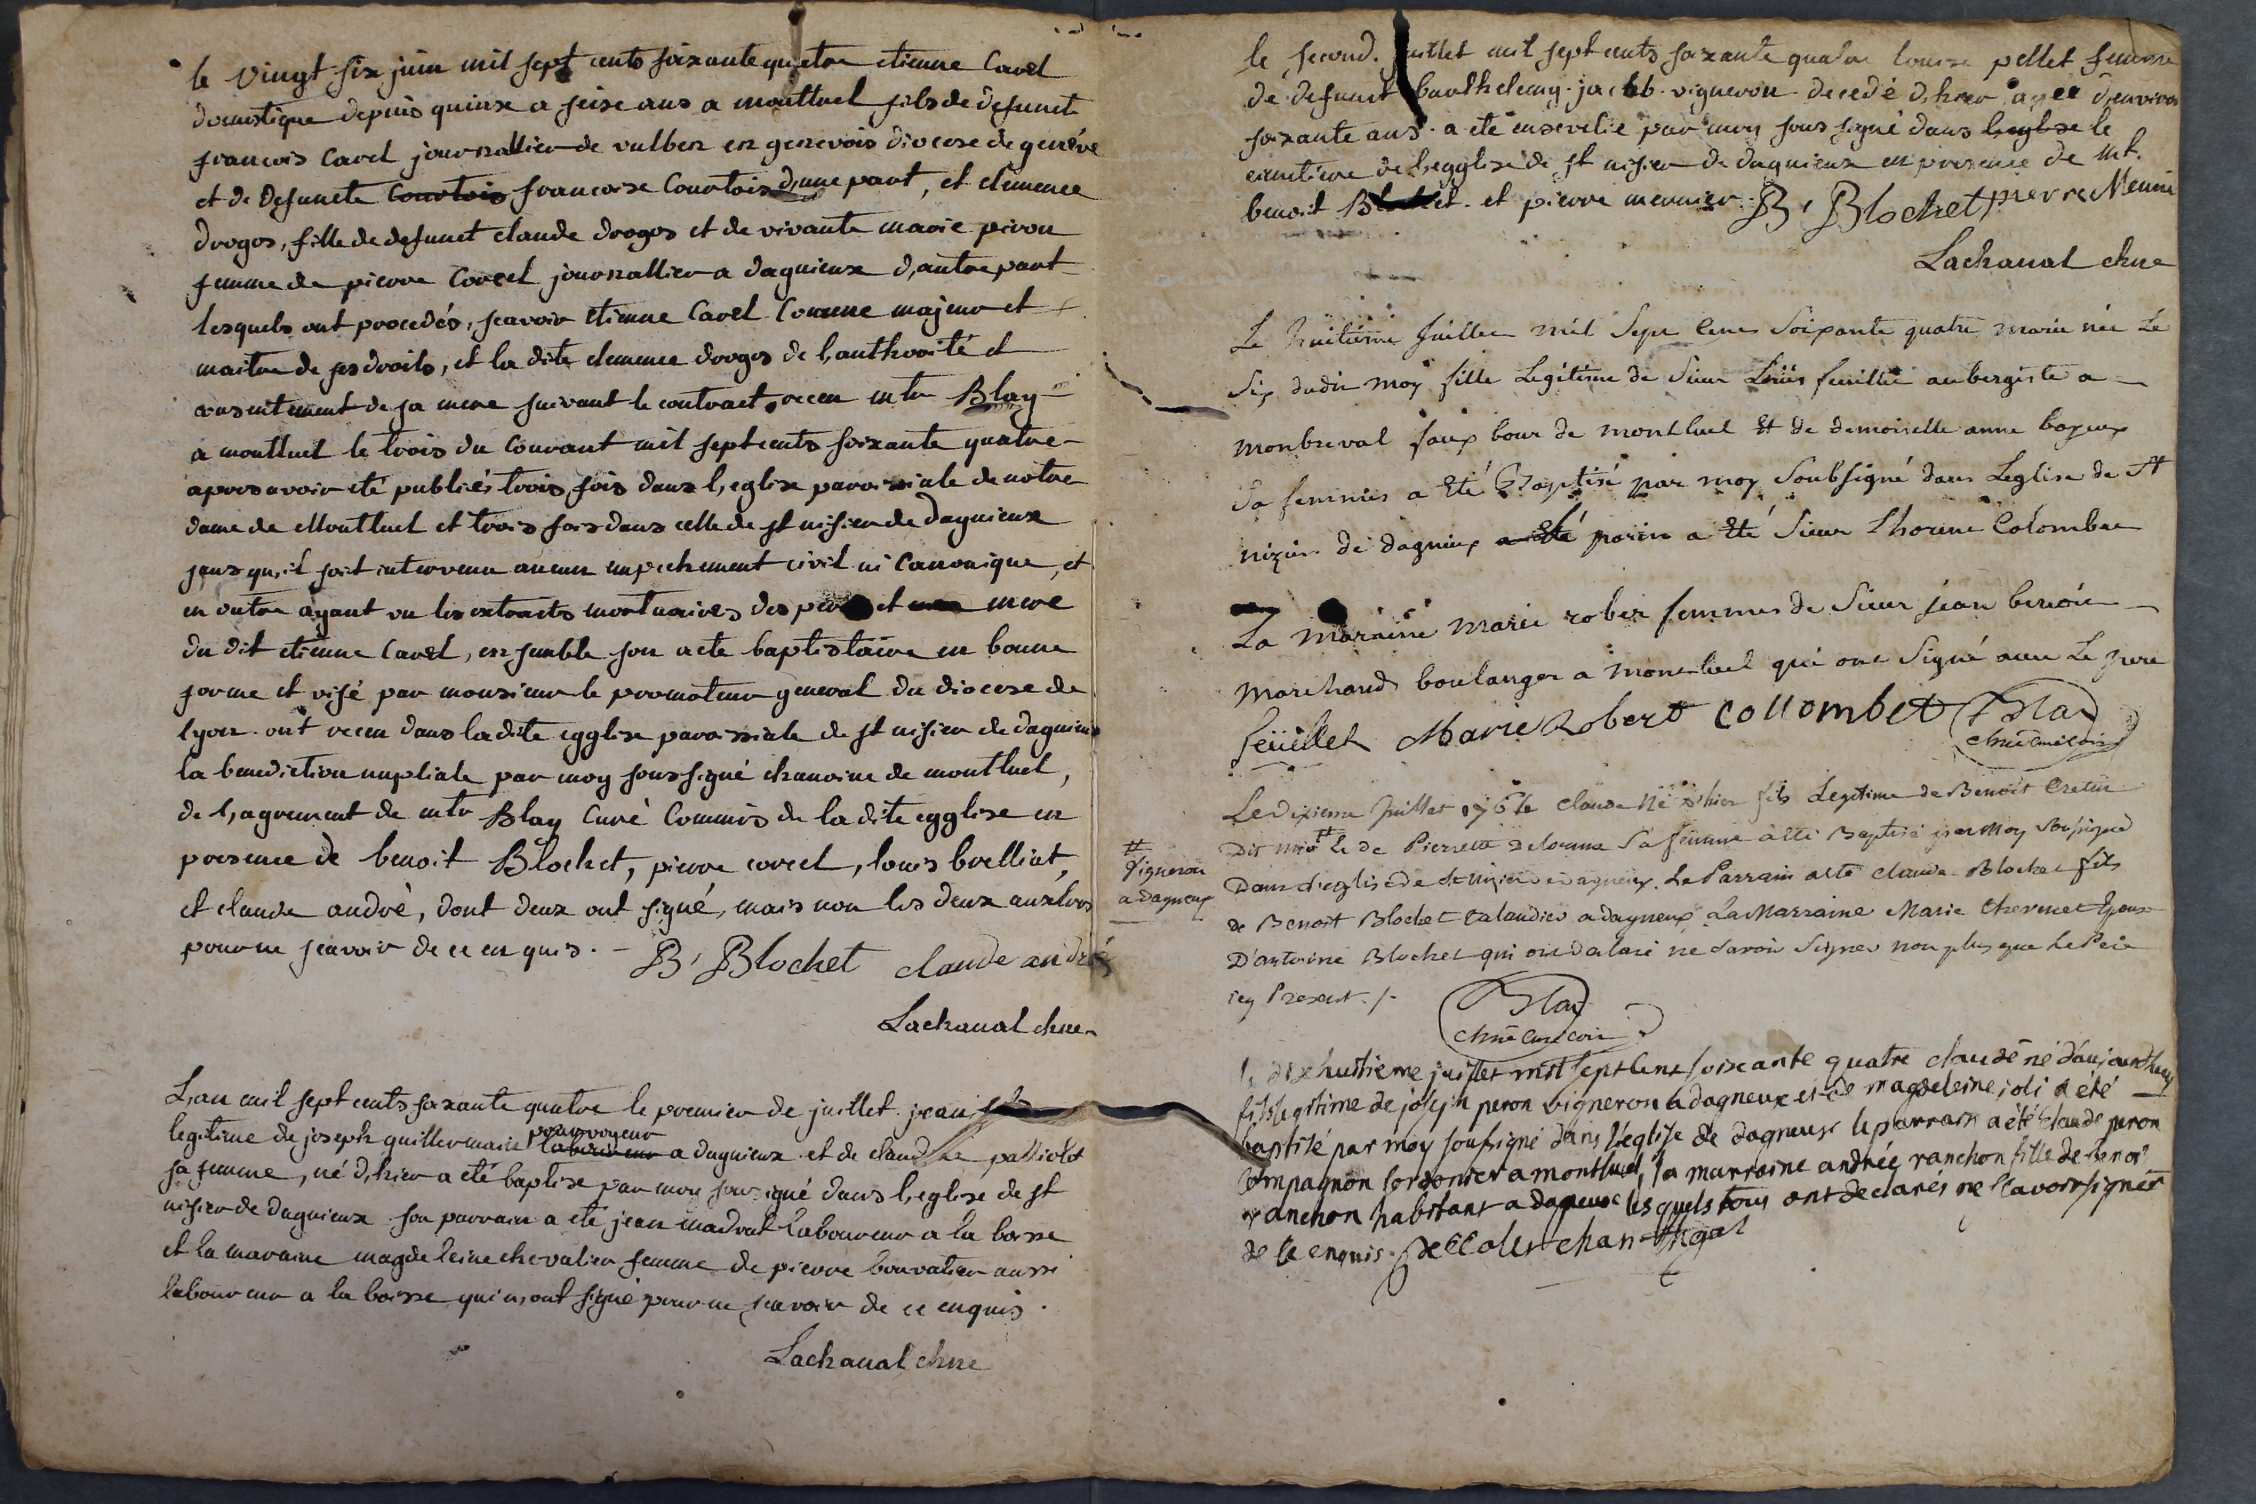 le vingt six juin mil sept cents soixante quatre etienne Cavel
domestique depuis quinze a seise ans a montluel fils de defunct
francois Cavel journallier de vulben en genevois diocese de genéve
et de defuncte Courtois francoise Courtois d,une part, et clemence
drogos, fille de defunct claude drogos et de vivante marie piron
femme de pierre Corcel journallier a dagnieux d,autre part
lesquels ont procedés, scavoir etienne Cavel Comme majeur et
maitre de ses droits, et la dite clemence drogos de l,authorité et
consentement de sa mere suivant le contract receu mtr Blay
a montluel le trois du Courant mil sept cents soixante quatre
apres avoir eté publiés trois fois dans l,eglise paroissiale de notre
dame de Montluel et trois fois dans celle de st nisier de dagnieux
sans qu,il soit intervenu aucun empechement civil ni Canonique, et
en outre ayant vu les extraits mortuaires des pere et mere
du dit etienne Cavel, ensemble son acte baptistaire en bonne
forme et visé par monsieur le promoteur general du diocese de
lyon ont receu dans la dite egglise paroissiale de st nisier de dagnieux
la benediction nuptiale par moy soussigné chanoine de montluel,
de l,agrement de mtr Blay Curé Commis de la dite egglise en
presence de benoit Blochet, pierre corcel, louis brelliat,
et claude andré, dont deux ont signé, mais non les deux aultres
pour ne scavoir de ce enquis. B, Blochet claude andré
Lachanal chne
L,an mil sept cents soixante quatre le premier de juillet jean fils
legitime de joseph guillermain laboureur pourvoyeur a dagnieux et de claudine
sa femme, né d,hier a eté baptise par moy soussigné dans l,eglise de st
nisier de dagnieux son parrain a eté jean madrat Laboureur a la boisse
et la maraine magdeleine chevalier femme de pierre bouvatier aussi
laboureur a la boisse qui n,ont signé pour ne scavoir de ce enquis.
Lachanal chne
le second juillet mil sept cents soixante quatre louise pellet femme
de defunct barthelemy jacob vigneron decedé d,hier agee d,environ
soixante ans a eté ensevelie par moy sous signé dans l,eglise le
cimetiere de l,egglise de st nisier de dagnieux en presence de mt.
benoit Blochet et pierre meunier B, Blochet pierre Meunie
Lachanal chne
Le huitiéme Juillet mil Sept Cens Soixante quatre marie née Le
Six dudit moy fille Legitime de Sieur Loüis feuillet aubergiste a
monbreval faux bour de montluel Et de demoiselle anne
Sa femmes a Eté Baptisé par moy Soubsigné dans Leglise de St
nizier de dagnieux a Eté parin a Eté Sieur Colombet
La maraine marie rober femmes de Sieur jean benoit
marchand boulanger a montluel qui ont Signé avec Le pere
feüillet Marie Robert collombet Blay
chne curé com
Le dixieme Juillet 1764 claude né d'hier fils Legitime de Benoit Cretin
Dit # & de Pierrette delorme Sa femme à été Baptisé par Moy Soussigné
# Vigneron
a dagneux
Dans L'eglise de St nizier de dagneux. Le Parrain a été claude Blochet fils
de Benoit Blochet a dagneux La Marraine Marie Epouse
D'antoine Blochet qui ont declaré ne Savoir Signer non plus que Le Pere
icy Present ./.
Blay
chne curé com
le dixhuitieme juillet mil sept cent soixante quatre claude né d'aujourdhuy
fils legitime de joseph peron vigneron a dagneux et de magdeleine joli a été
baptisé par moy sousigné dans l'eglise de dagneux le parrain a été claude peron
compagnon cordonier a montluel, la marraine andrée ranchon fille de benoi
ranchon habitant a dagneux les quels tous ont declarés ne scavoir signer
de ce enquis